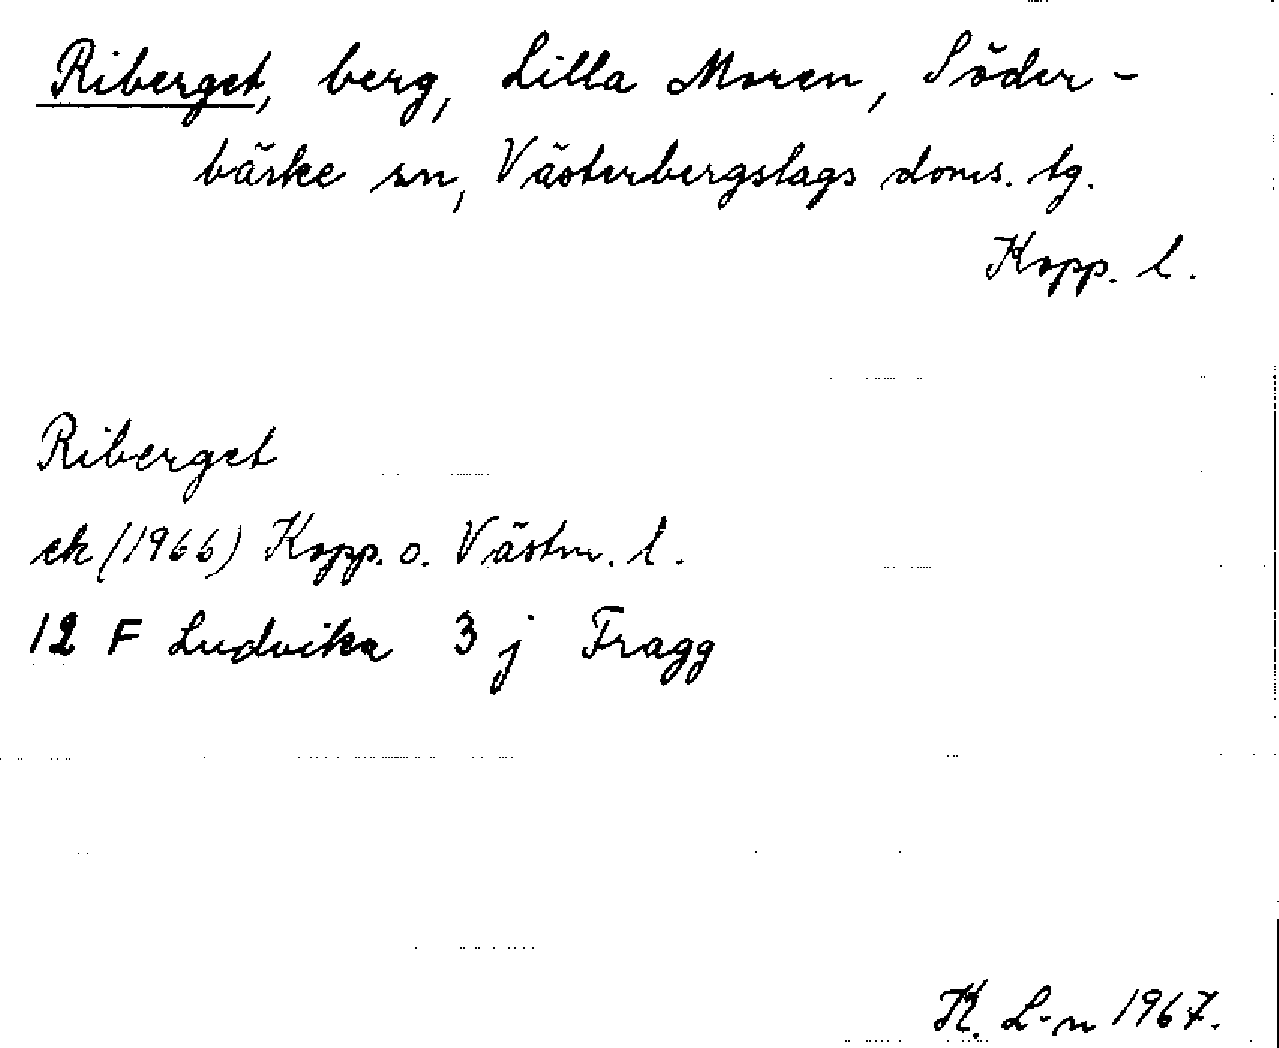 Riberget, berg, Lilla Moren, Söder-
bärke sn, Västerbergslags doms. tg.
Kopp. l.
Riberget
ek (1966) Kopp. o. Västm. l.
12 F Ludvika 3 j Fragg
K. L-n 1967.